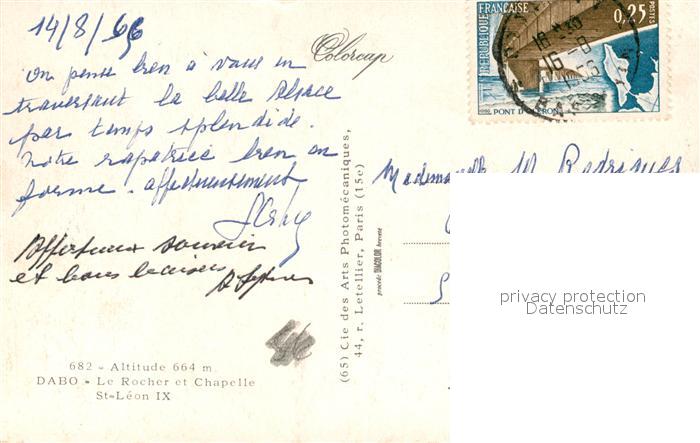 14/8/66
On pense bien à vous en
traversant la belle Alsace
par temps splendide.
Notre rapatriée bien en
forme. affectueusement
Affectueux souvenir
et bons baisers
682 - Altitude 664 m.
DABO - Le Rocher et Chapelle
St-Léon IX
Colorcap
(65) Cie des Arts Photomécaniques,
44, r. Letellier, Paris (15e)
procédé DIACOLOR breveté
RÉPUBLIQUE FRANÇAISE
0,25
POSTES
PONT D'OLERON
16-8
Mademoiselle M Rodrigues
privacy protection
Datenschutz